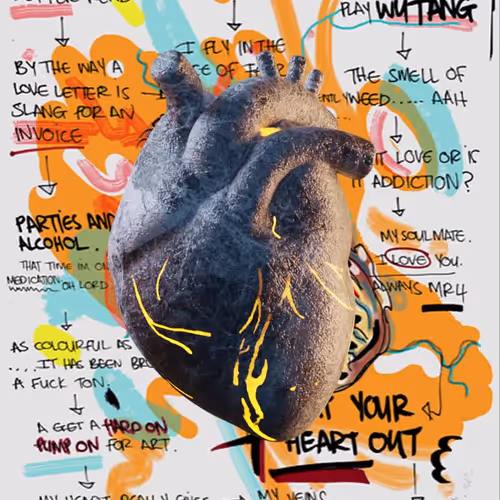 PLAY WUTANG
I FLY IN THE
BY THE WAY A
LOVE LETTER IS
SLANG FOR AN
INVOICE
THE SMELL OF
WEED..... AAH
LOVE OR IS
ADDICTION?
PARTIES AND
ALCOHOL.
THAT TIME I'M ON
MEDICATION OH LORD
MY SOULMATE.
I LOVE YOU.
ALWAYS MR.4
AS COLOURFUL AS
....IT HAS BEEN
A FUCK TON.
A GET A HARD ON
PUMP ON FOR ART.
YOUR
HEART OUT
MY HEART REALLY
MY VEINS